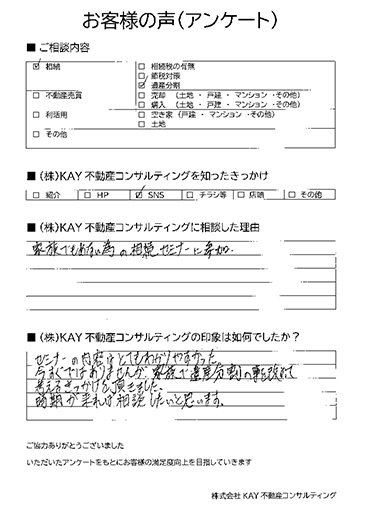 お客様の声（アンケート）
■ ご相談内容
☑ 相続
□ 相続税の有無
□ 節税対策
☑ 遺産分割
□ 不動産売買
□ 売却 （土地 ・ 戸建 ・ マンション ・その他）
□ 購入 （土地 ・ 戸建 ・ マンション ・その他）
□ 利活用
□ 空き家（戸建 ・ マンション ・その他）
□ 土地
□ その他
■ （株）KAY 不動産コンサルティングを知ったきっかけ
□ 紹介 □ HP ☑ SNS □ チラシ等 □ 店頭 □ その他
■ （株）KAY 不動産コンサルティングに相談した理由
家族でもめない為の相続セミナーに参加。
■ （株）KAY 不動産コンサルティングの印象は如何でしたか？
セミナーの内容はとてもわかりやすかった
今すぐではありませんが、家族で遺産分割の
考えるきっかけを頂きました。
時期が来れば相談したいと思います。
ご協力ありがとうございました
いただいたアンケートをもとにお客様の満足度向上を目指していきます
株式会社 KAY 不動産コンサルティング